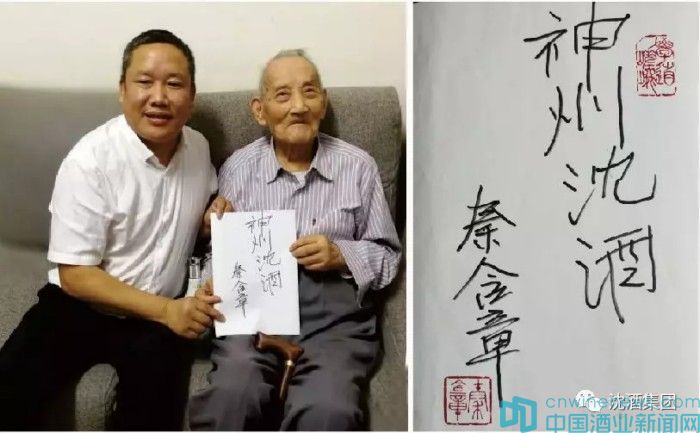 神州沈酒
秦含章
神州沈酒
秦含章
沈酒集团
cnwinenews.com
中国酒业新闻网